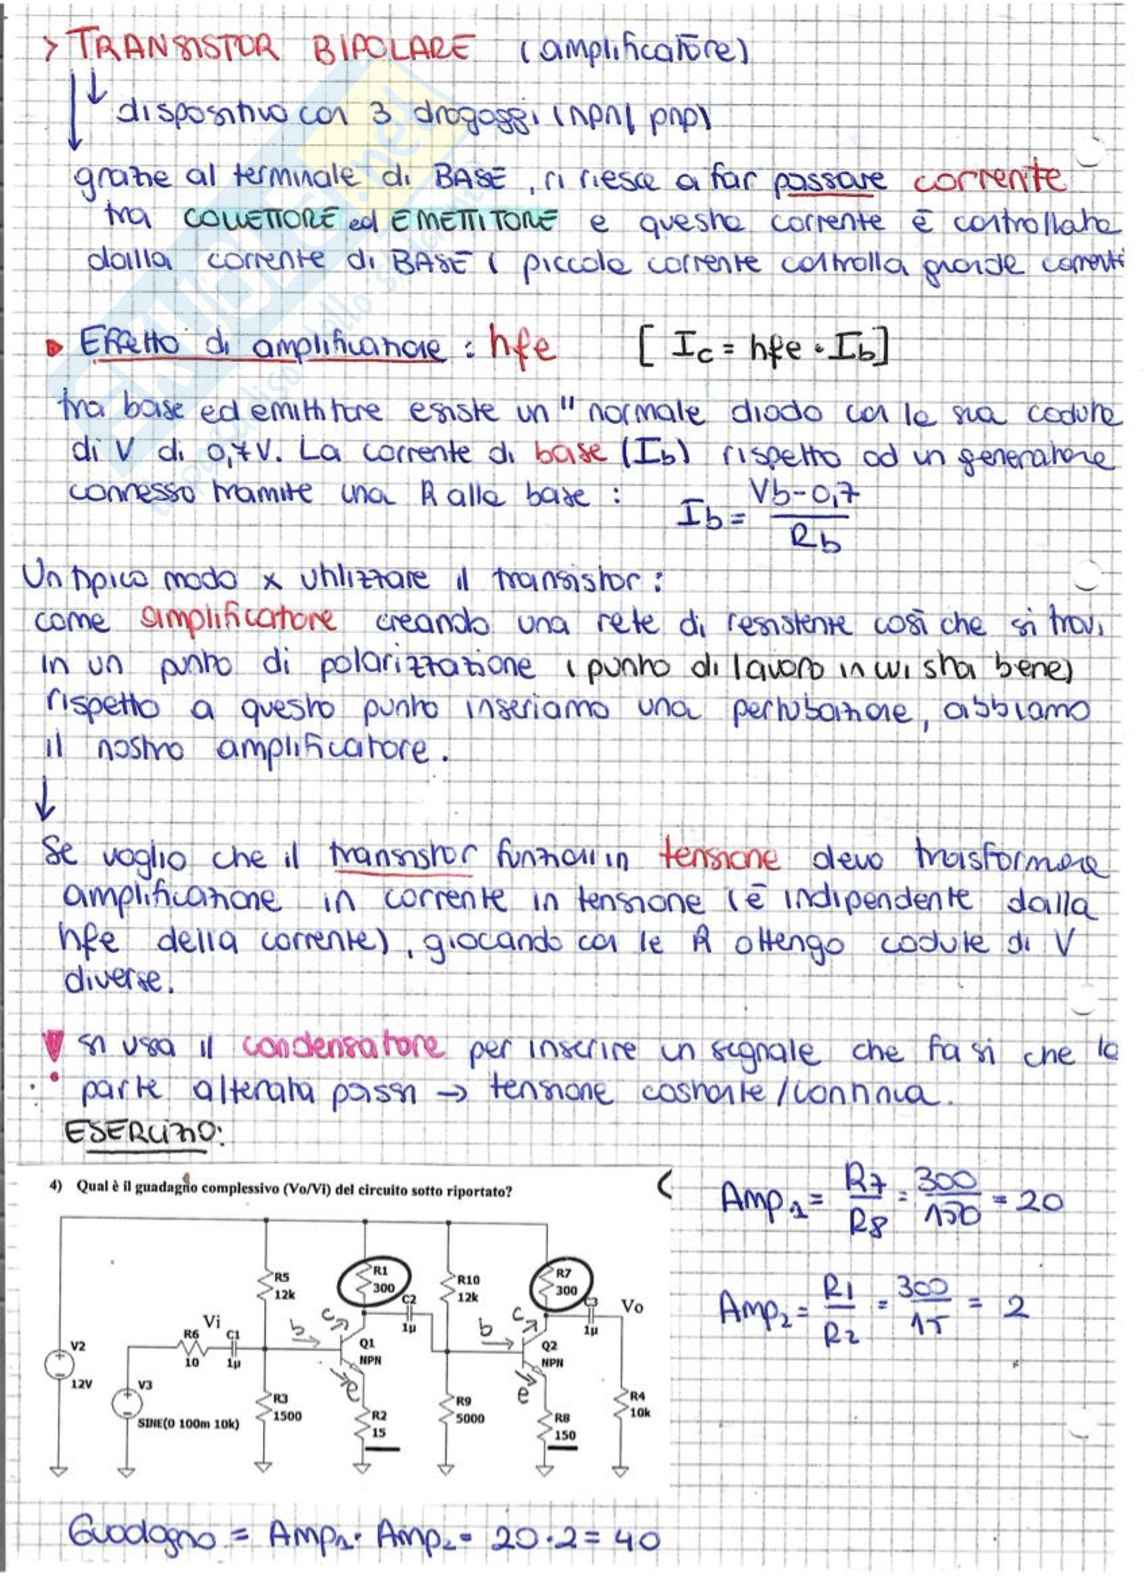 > TRANSISTOR BIPOLARE (amplificatore)
↓ dispositivo con 3 drogaggi (npn/pnp)
grazie al terminale di BASE, si riesce a far passare corrente
tra COLLETTORE ed EMETTITORE e questa corrente è controllata
dalla corrente di BASE ( piccola corrente controlla grande corrente
Effetto di amplificazione : hfe [ Ic = hfe · Ib]
tra base ed emittitore esiste un " normale diodo con la sua caduta
di V di 0,7V. La corrente di base (Ib) rispetto ad un generatore
connesso tramite una R alla base : Ib = Vb-0,7 / Rb
Un tipico modo x utilizzare il transistor :
come amplificatore creando una rete di resistenze così che si trovi
in un punto di polarizzazione (punto di lavoro in cui sta bene)
rispetto a questo punto inseriamo una pertubazione, abbiamo
il nostro amplificatore.
↓
Se voglio che il transistor funzioni in tensione devo trasformare
amplificazione in corrente in tensione (è indipendente dalla
hfe della corrente), giocando con le R ottengo cadute di V
diverse.
si usa il condensatore per inserire un segnale che fa sì che la
parte alternata passi → tensione costante/continua.
ESERCIZIO:
4) Qual è il guadagno complessivo (Vo/Vi) del circuito sotto riportato?
Amp1 = R7/R8 = 300/150 = 20
Amp2 = R1/R2 = 300/15 = 2
R5
12k
R1
300
C2
1µ
R10
12k
R7
300
C3
1µ
Vo
Vi
R6
10
C1
1µ
b
c
e
Q1
NPN
b
c
e
Q2
NPN
V2
12V
V3
SINE(0 100m 10k)
R3
1500
R2
15
R9
5000
R8
150
R4
10k
Guadagno = Amp1 · Amp2 = 20·2 = 40